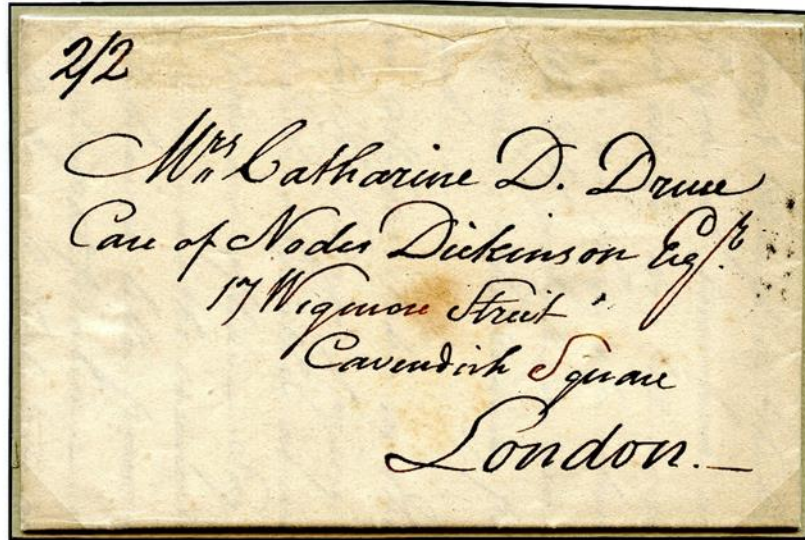 2/2
Mrs Catharine D. Druce
Care of Nodes Dickinson Esqr.
17 Wigmore Street
Cavendish Square
London.